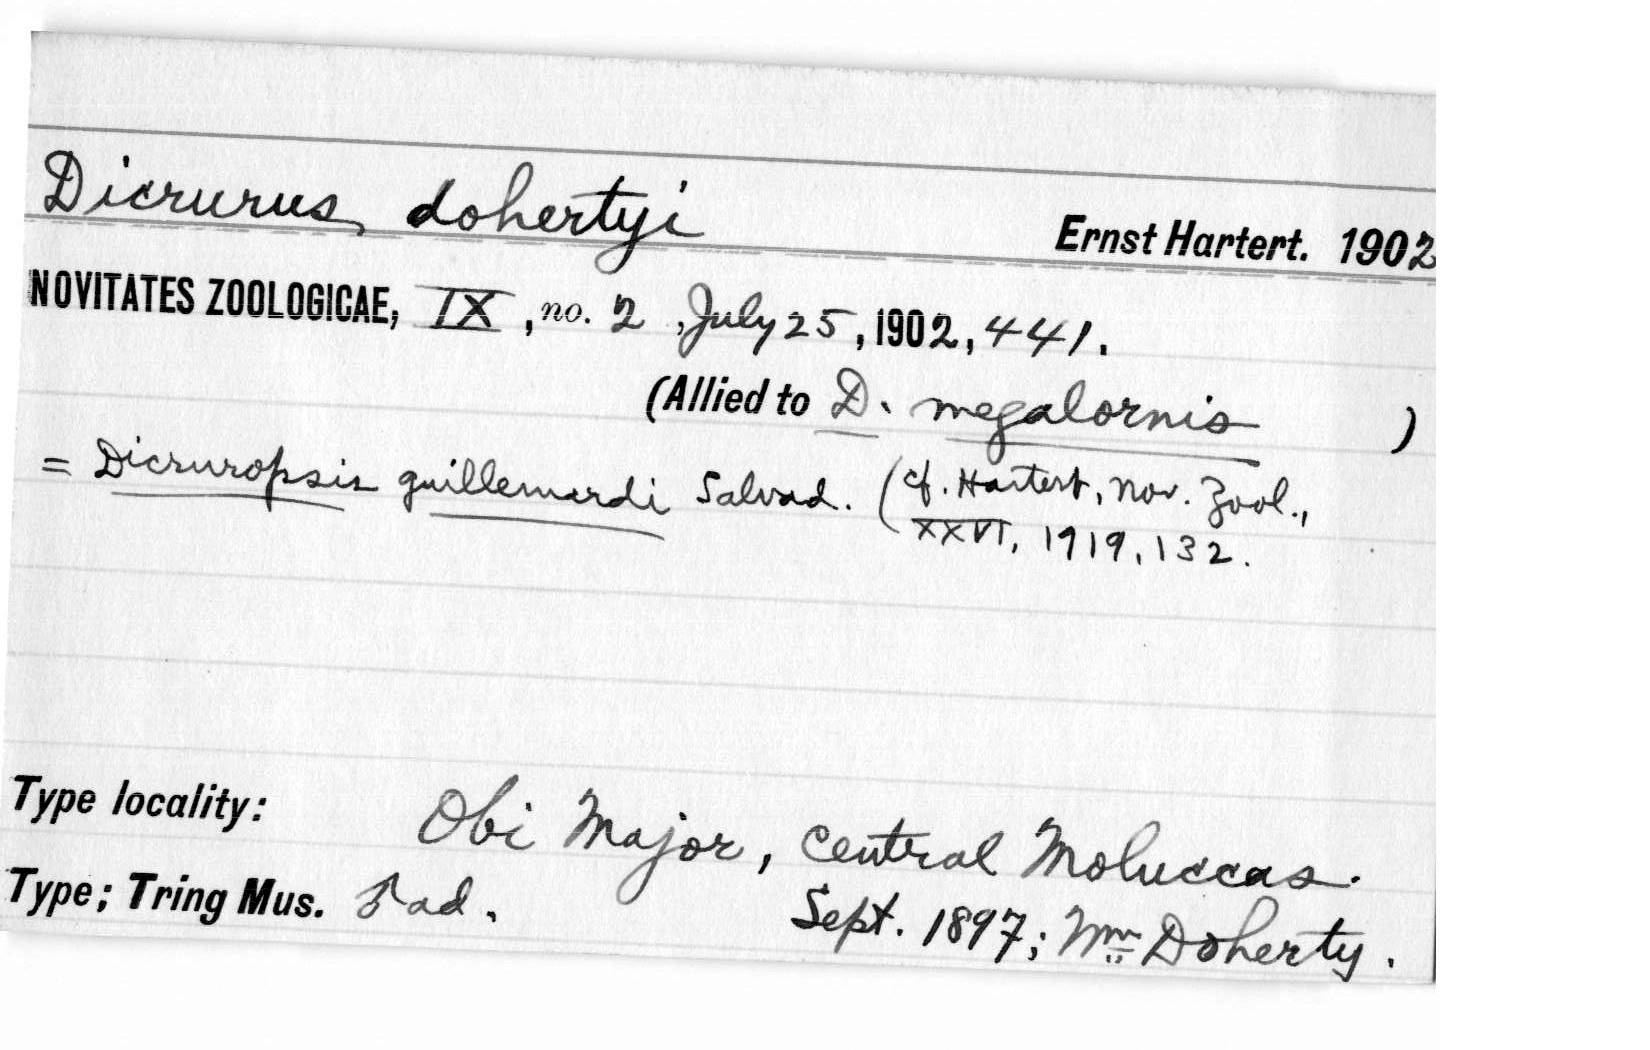 Dicrurus dohertyi
Ernst Hartert. 1902
NOVITATES ZOOLOGICAE, IX, no. 2, July 25, 1902, 441.
(Allied to D. megalornis )
= Dicruropsis guillemardi Salvad. (cf. Hartert, Nov. Zool.,
XXVI, 1919, 132.
Type locality: Obi Major, Central Moluccas.
Type; Tring Mus. ♂ ad. Sept. 1897; Wm Doherty.